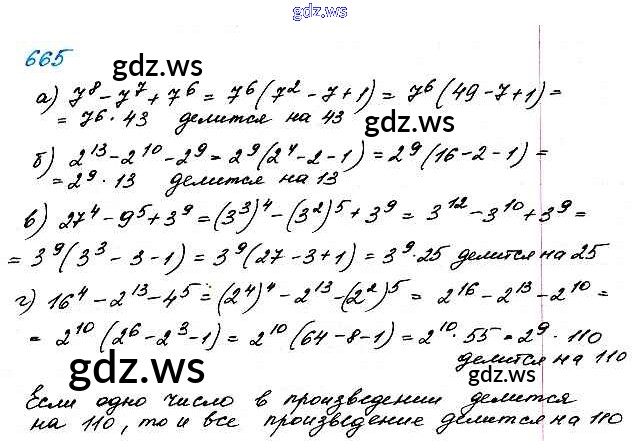 gdz.ws
665
gdz.ws
а) 7⁸ - 7⁷ + 7⁶ = 7⁶(7² - 7 + 1) = 7⁶(49 - 7 + 1) =
= 7⁶ · 43 делится на 43
б) 2¹³ - 2¹⁰ - 2⁹ = 2⁹(2⁴ - 2 - 1) = 2⁹(16 - 2 - 1) =
= 2⁹ · 13 делится на 13
gdz.ws gdz.ws
в) 27⁴ - 9⁵ + 3⁹ = (3³)⁴ - (3²)⁵ + 3⁹ = 3¹² - 3¹⁰ + 3⁹ =
= 3⁹(3³ - 3 - 1) = 3⁹(27 - 3 + 1) = 3⁹ · 25 делится на 25
г) 16⁴ - 2¹³ - 4⁵ = (2⁴)⁴ - 2¹³ - (2²)⁵ = 2¹⁶ - 2¹³ - 2¹⁰ =
= 2¹⁰(2⁶ - 2³ - 1) = 2¹⁰(64 - 8 - 1) = 2¹⁰ · 55 = 2⁹ · 110
делится на 110
gdz.ws gdz.ws
Если одно число в произведении делится
на 110, то и все произведение делится на 110
gdz.ws